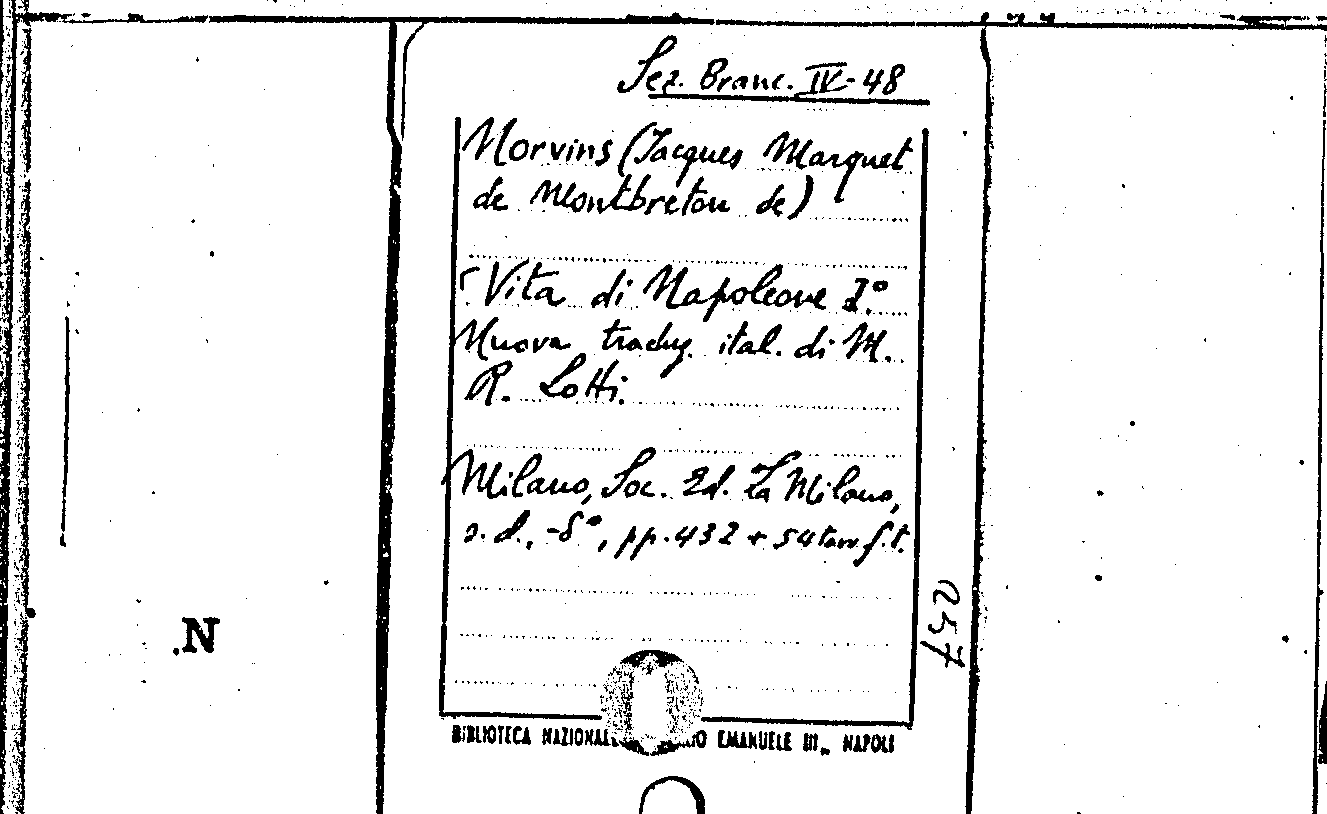 Sez. Branc. IV-48
Norvins (Jacques Marquet
de Montbreton de)
Vita di Napoleone I.°
Nuova traduz. ital. di M.
R. Lotti.
Milano, Soc. Ed. La Milano,
s. d., -8°, pp. 432 + 54 tav f.t.
257
.N
BIBLIOTECA NAZIONALE EMANUELE III„ NAPOLI